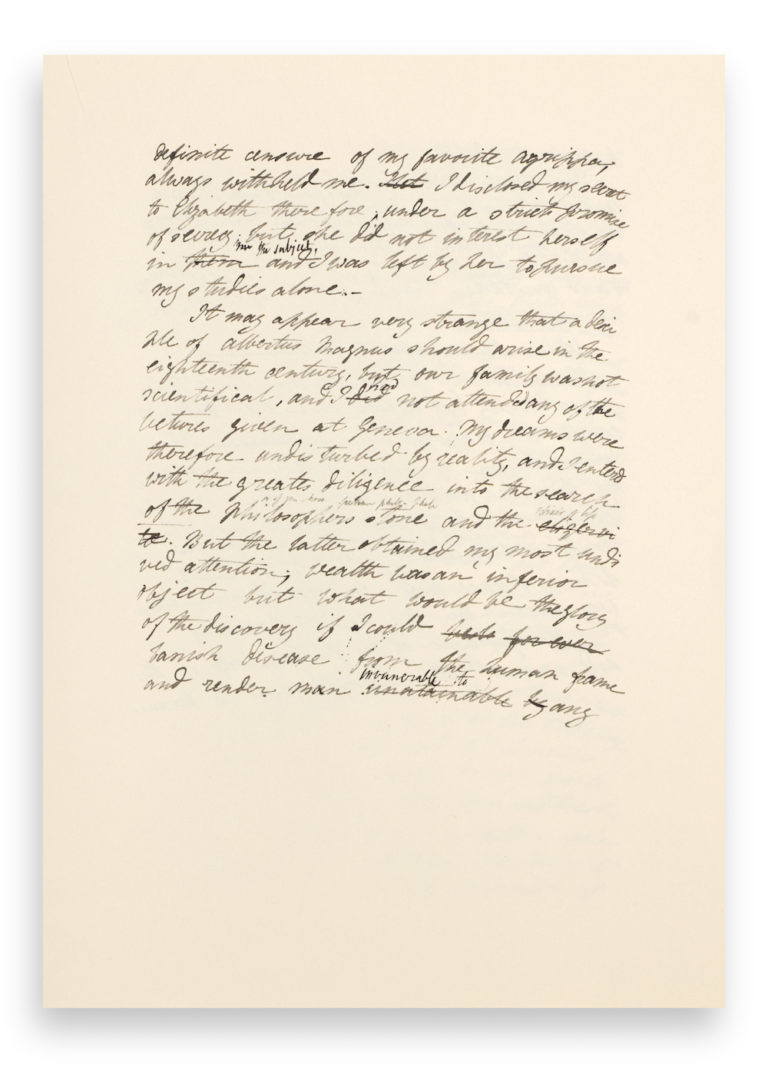 definite censure of my favorite Agrippa,
always withheld me. But I disclosed my secret
to Elizabeth therefore, under a strict promise
of secrecy, but she did not interest herself
in the subject,
in them and I was left by her to pursue
my studies alone.—
It may appear very strange that a deci
ple of Albertus Magnus should arise in the
eighteenth century, but our family was not
scientifical, and I did had not attended any of the
lectures given at Geneva. My dreams were
therefore undisturbed by reality, and I entered
with the greates diligence into the search
of the philosophers stone and the elixir vi
tæ. But the latter obtained my most undi
vid attention; wealth was an inferior
object but what would be the glory
of the discovery if I could for ever
banish disease from the human frame
invunerable to
and render man unatainable by any